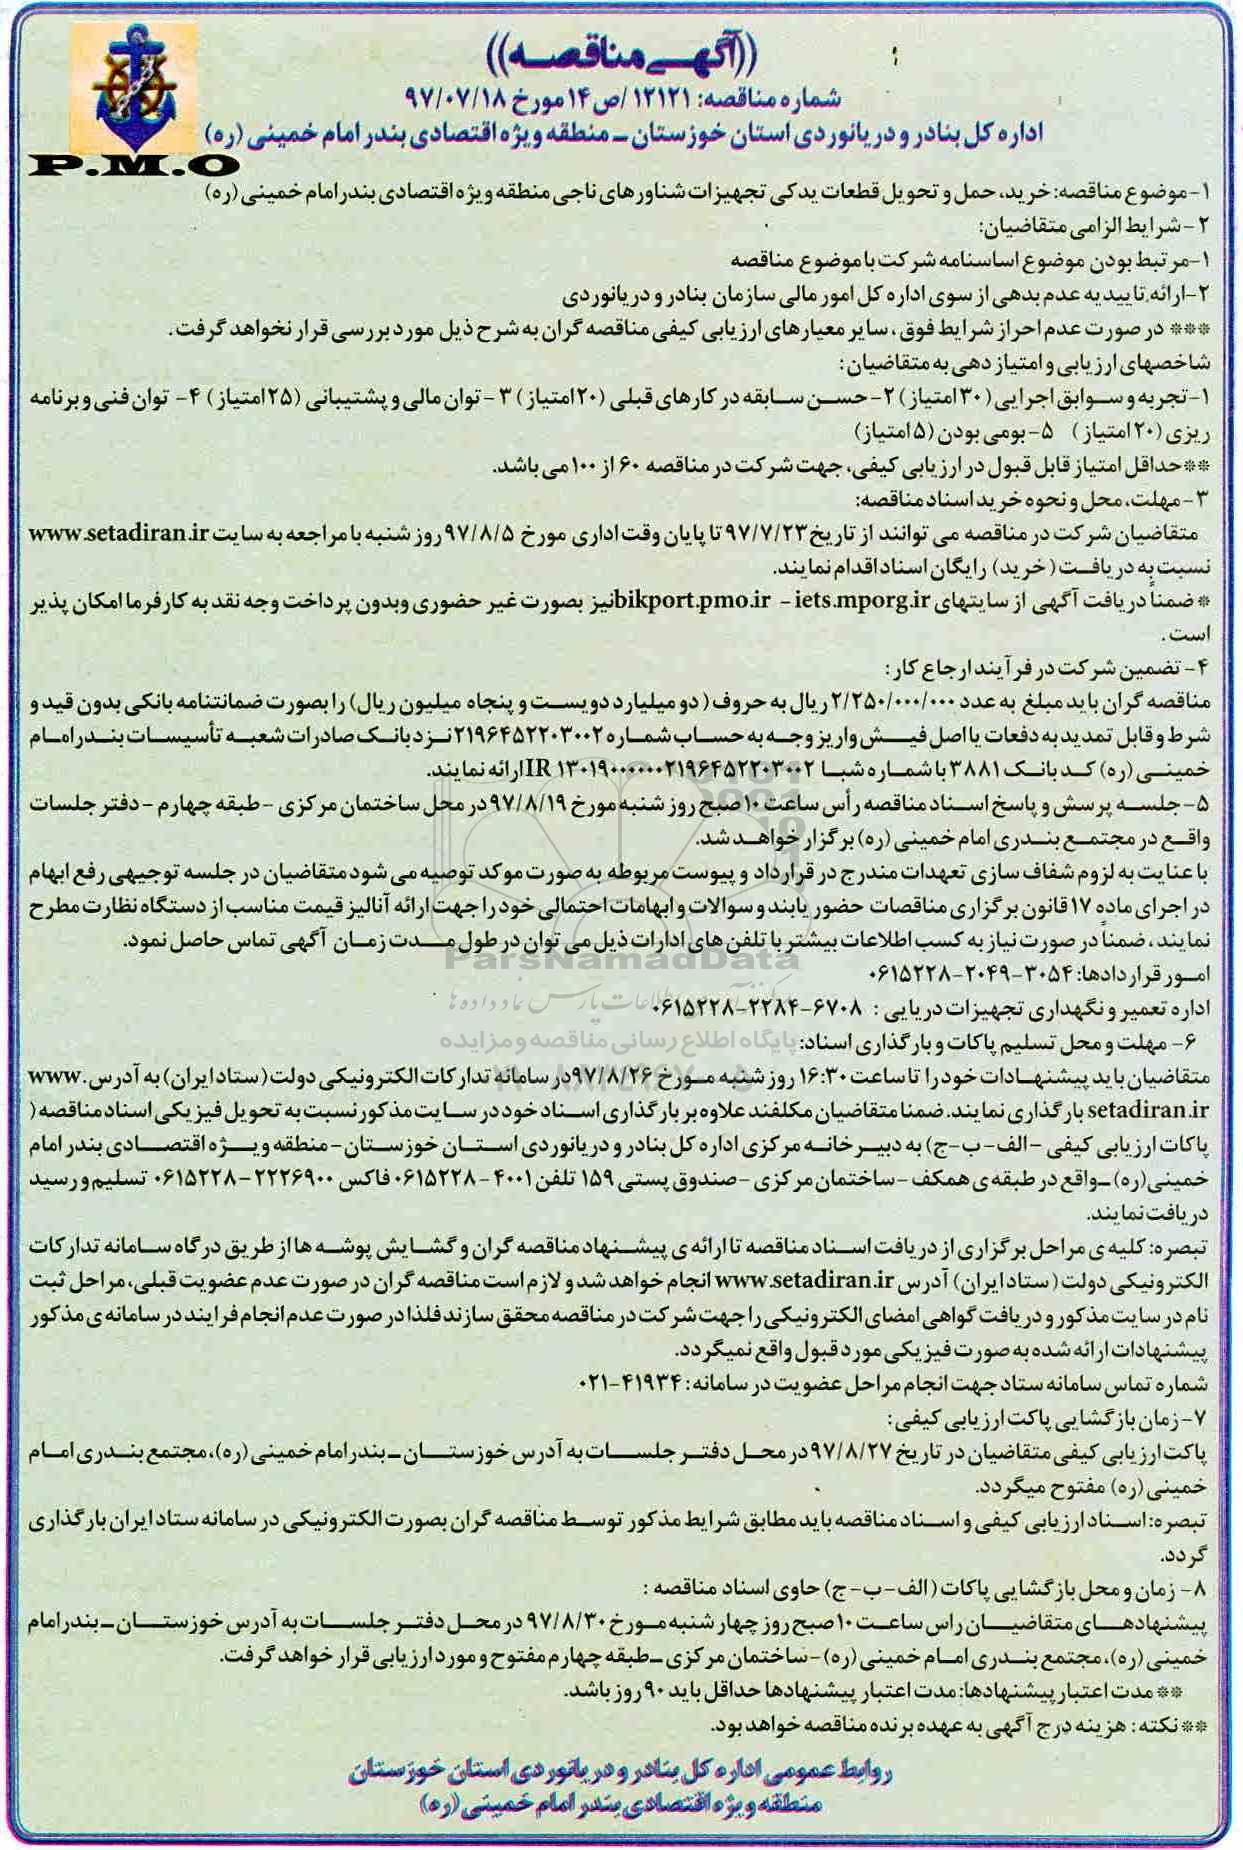 ((آگهـی مناقصـه))
شماره مناقصه: ۱۲۱۲۱/ص۱۴ مورخ ۹۷/۰۷/۱۸
اداره کل بنادر و دریانوردی استان خوزستان ـ منطقه ویژه اقتصادی بندر امام خمینی (ره)
P.M.O
۱-موضوع مناقصه: خرید، حمل و تحویل قطعات یدکی تجهیزات شناورهای ناجی منطقه ویژه اقتصادی بندرامام خمینی (ره)
۲-شرایط الزامی متقاضیان:
۱-مرتبط بودن موضوع اساسنامه شرکت با موضوع مناقصه
۲-ارائه تاییدیه عدم بدهی از سوی اداره کل امور مالی سازمان بنادر و دریانوردی
*** در صورت عدم احراز شرایط فوق، سایر معیارهای ارزیابی کیفی مناقصه گران به شرح ذیل مورد بررسی قرار نخواهد گرفت.
شاخصهای ارزیابی و امتیاز دهی به متقاضیان:
۱-تجربه و سـوابق اجرایی (۳۰ امتیاز) ۲-حسـن سـابقه در کارهای قبلی (۲۰امتیاز) ۳-توان مالی و پشتیبانی (۲۵امتیاز) ۴- توان فنی و برنامه
ریزی (۲۰ امتیاز) ۵-بومی بودن (۵ امتیاز)
**حداقل امتیاز قابل قبول در ارزیابی کیفی، جهت شرکت در مناقصه ۶۰ از ۱۰۰ می باشد.
۳-مهلت، محل و نحوه خرید اسناد مناقصه:
متقاضیان شرکت در مناقصه می توانند از تاریخ ۹۷/۷/۲۳ تا پایان وقت اداری مورخ ۹۷/۸/۵ روز شنبه با مراجعه به سایت www.setadiran.ir
نسبت به دریافـت (خرید) رایگان اسناد اقدام نمایند.
* ضمناً دریافت آگهی از سایتهای bikport.pmo.ir - iets.mporg.ir نیز بصورت غیر حضوری وبدون پرداخت وجه نقد به کارفرما امکان پذیر
است.
۴- تضمین شرکت در فرآیند ارجاع کار:
مناقصه گران باید مبلغ به عدد ۲/۲۵۰/۰۰۰/۰۰۰ ریال به حروف( دو میلیارد دویسـت و پنجاه میلیون ریال) را بصورت ضمانتنامه بانکی بدون قید و
شرط و قابل تمدید به دفعات یا اصل فیـش واریز وجـه به حسـاب شمـاره ۲۱۹۶۴۵۲۲۰۳۰۰۲ نـزد بانـک صادرات شعبـه تأسیسـات بنـدر امام
خمینـی (ره) کـد بانـک ۳۸۸۱ با شمـاره شبـا IR ۱۳۰۱۹۰۰۰۰۰۰۰۲۱۹۶۴۵۲۲۰۳۰۰۲ ارائه نمایند.
۵-جلسـه پرسش و پاسخ اسـناد مناقصه رأس ساعت ۱۰ صبح روز شنبه مورخ ۹۷/۸/۱۹ در محل ساختمان مرکزی -طبقه چهارم -دفتر جلسات
واقـع در مجتمـع بنـدری امام خمینی (ره) برگزار خواهـد شد.
با عنایت به لزوم شفاف سازی تعهدات مندرج در قرارداد و پیوست مربوطه به صورت موکد توصیه می شود متقاضیان در جلسه توجیهی رفع ابهام
در اجرای ماده ۱۷ قانون برگزاری مناقصات حضور یابند و سوالات و ابهامات احتمالی خود را جهت ارائه آنالیز قیمت مناسب از دستگاه نظارت مطرح
نمایند، ضمناً در صورت نیاز به کسب اطلاعات بیشتر با تلفن های ادارات ذیل می توان در طول مـدت زمـان آگهی تماس حاصل نمود.
ParsNamadData
امـور قراردادها: ۳۰۵۴-۲۰۴۹-۰۶۱۵۲۲۸
اداره تعمیر و نگهداری تجهیزات دریایی : ۶۷۰۸-۲۲۸۴-۰۶۱۵۲۲۸
پایگاه اطلاع رسانی مناقصه و مزایده
۶- مهلت و محل تسلیم پاکات و بارگذاری اسناد:
متقاضیان باید پیشنهـادات خود را تا ساعت ۱۶:۳۰ روز شنبه مـورخ ۹۷/۸/۲۶ در سامانه تدارکات الکترونیکی دولت (ستاد ایران) به آدرس www.
setadiran.ir بارگذاری نمایند. ضمنا متقاضیان مکلفند علاوه بر بارگذاری اسـناد خود در سـایت مذکور نسبت به تحویل فیزیکی اسناد مناقصه (
پاکات ارزیابی کیفی -الف- ب-ج) به دبیرخانـه مرکزی اداره کل بنادر و دریانوردی استـان خوزستان-منطقه ویـژه اقتصـادی بندر امام
خمینی(ره) ـواقع در طبقه ی همکف -ساختمان مرکزی -صندوق پستی ۱۵۹ تلفن ۴۰۰۱-۰۶۱۵۲۲۸ فاکس ۲۲۲۶۹۰۰-۰۶۱۵۲۲۸ تسلیم و رسید
دریافت نمایند.
تبصره: کلیه ی مراحل برگزاری از دریافت اسـناد مناقصه تا ارائه ی پیشـنهاد مناقصه گران و گشـایش پوشه ها از طریق درگاه سـامانه تدارکات
الکترونیکی دولت (ستاد ایران) آدرس www.setadiran.ir انجام خواهد شد و لازم است مناقصه گران در صورت عدم عضویت قبلی، مراحل ثبت
نام در سایت مذکور و دریافت گواهی امضای الکترونیکی را جهت شرکت در مناقصه محقق سازند فلذا در صورت عدم انجام فرایند در سامانه ی مذکور
پیشنهادات ارائه شده به صورت فیزیکی مورد قبول واقع نمیگردد.
شماره تماس سامانه ستاد جهت انجام مراحل عضویت در سامانه: ۴۱۹۳۴-۰۲۱
۷-زمان بازگشایی پاکت ارزیابی کیفی:
پاکت ارزیابی کیفی متقاضیان در تاریخ ۹۷/۸/۲۷ در محـل دفتـر جلسـات به آدرس خوزستـان ـ بندر امام خمینی (ره)، مجتمع بنـدری امـام
خمینی (ره) مفتوح میگردد.
تبصره: اسـناد ارزیابی کیفی و اسـناد مناقصه باید مطابق شرایط مذکور توسـط مناقصه گران بصورت الکترونیکی در سامانه ستاد ایران بارگذاری
گردد.
۸- زمان و محل بازگشایی پاکات (الف-ب-ج) حاوی اسناد مناقصه :
پیشنهادهـای متقاضیـان راس ساعـت ۱۰ صبح روز چهارشنبه مـورخ ۹۷/۸/۳۰ در محـل دفتـر جلسـات به آدرس خوزستـان ـ بندر امام
خمینی (ره)، مجتمع بنـدری امـام خمینی (ره)-ساختمان مرکزی ـ طبقه چهارم مفتوح و مورد ارزیابی قرار خواهد گرفت.
** مدت اعتبار پیشنهادها: مدت اعتبار پیشنهادها حداقل باید ۹۰ روز باشد.
** نکته: هزینه درج آگهی به عهده برنده مناقصه خواهد بود.
روابط عمومی اداره کل بنادر و دریانوردی استان خوزستان
منطقه ویژه اقتصادی بندر امام خمینی (ره)